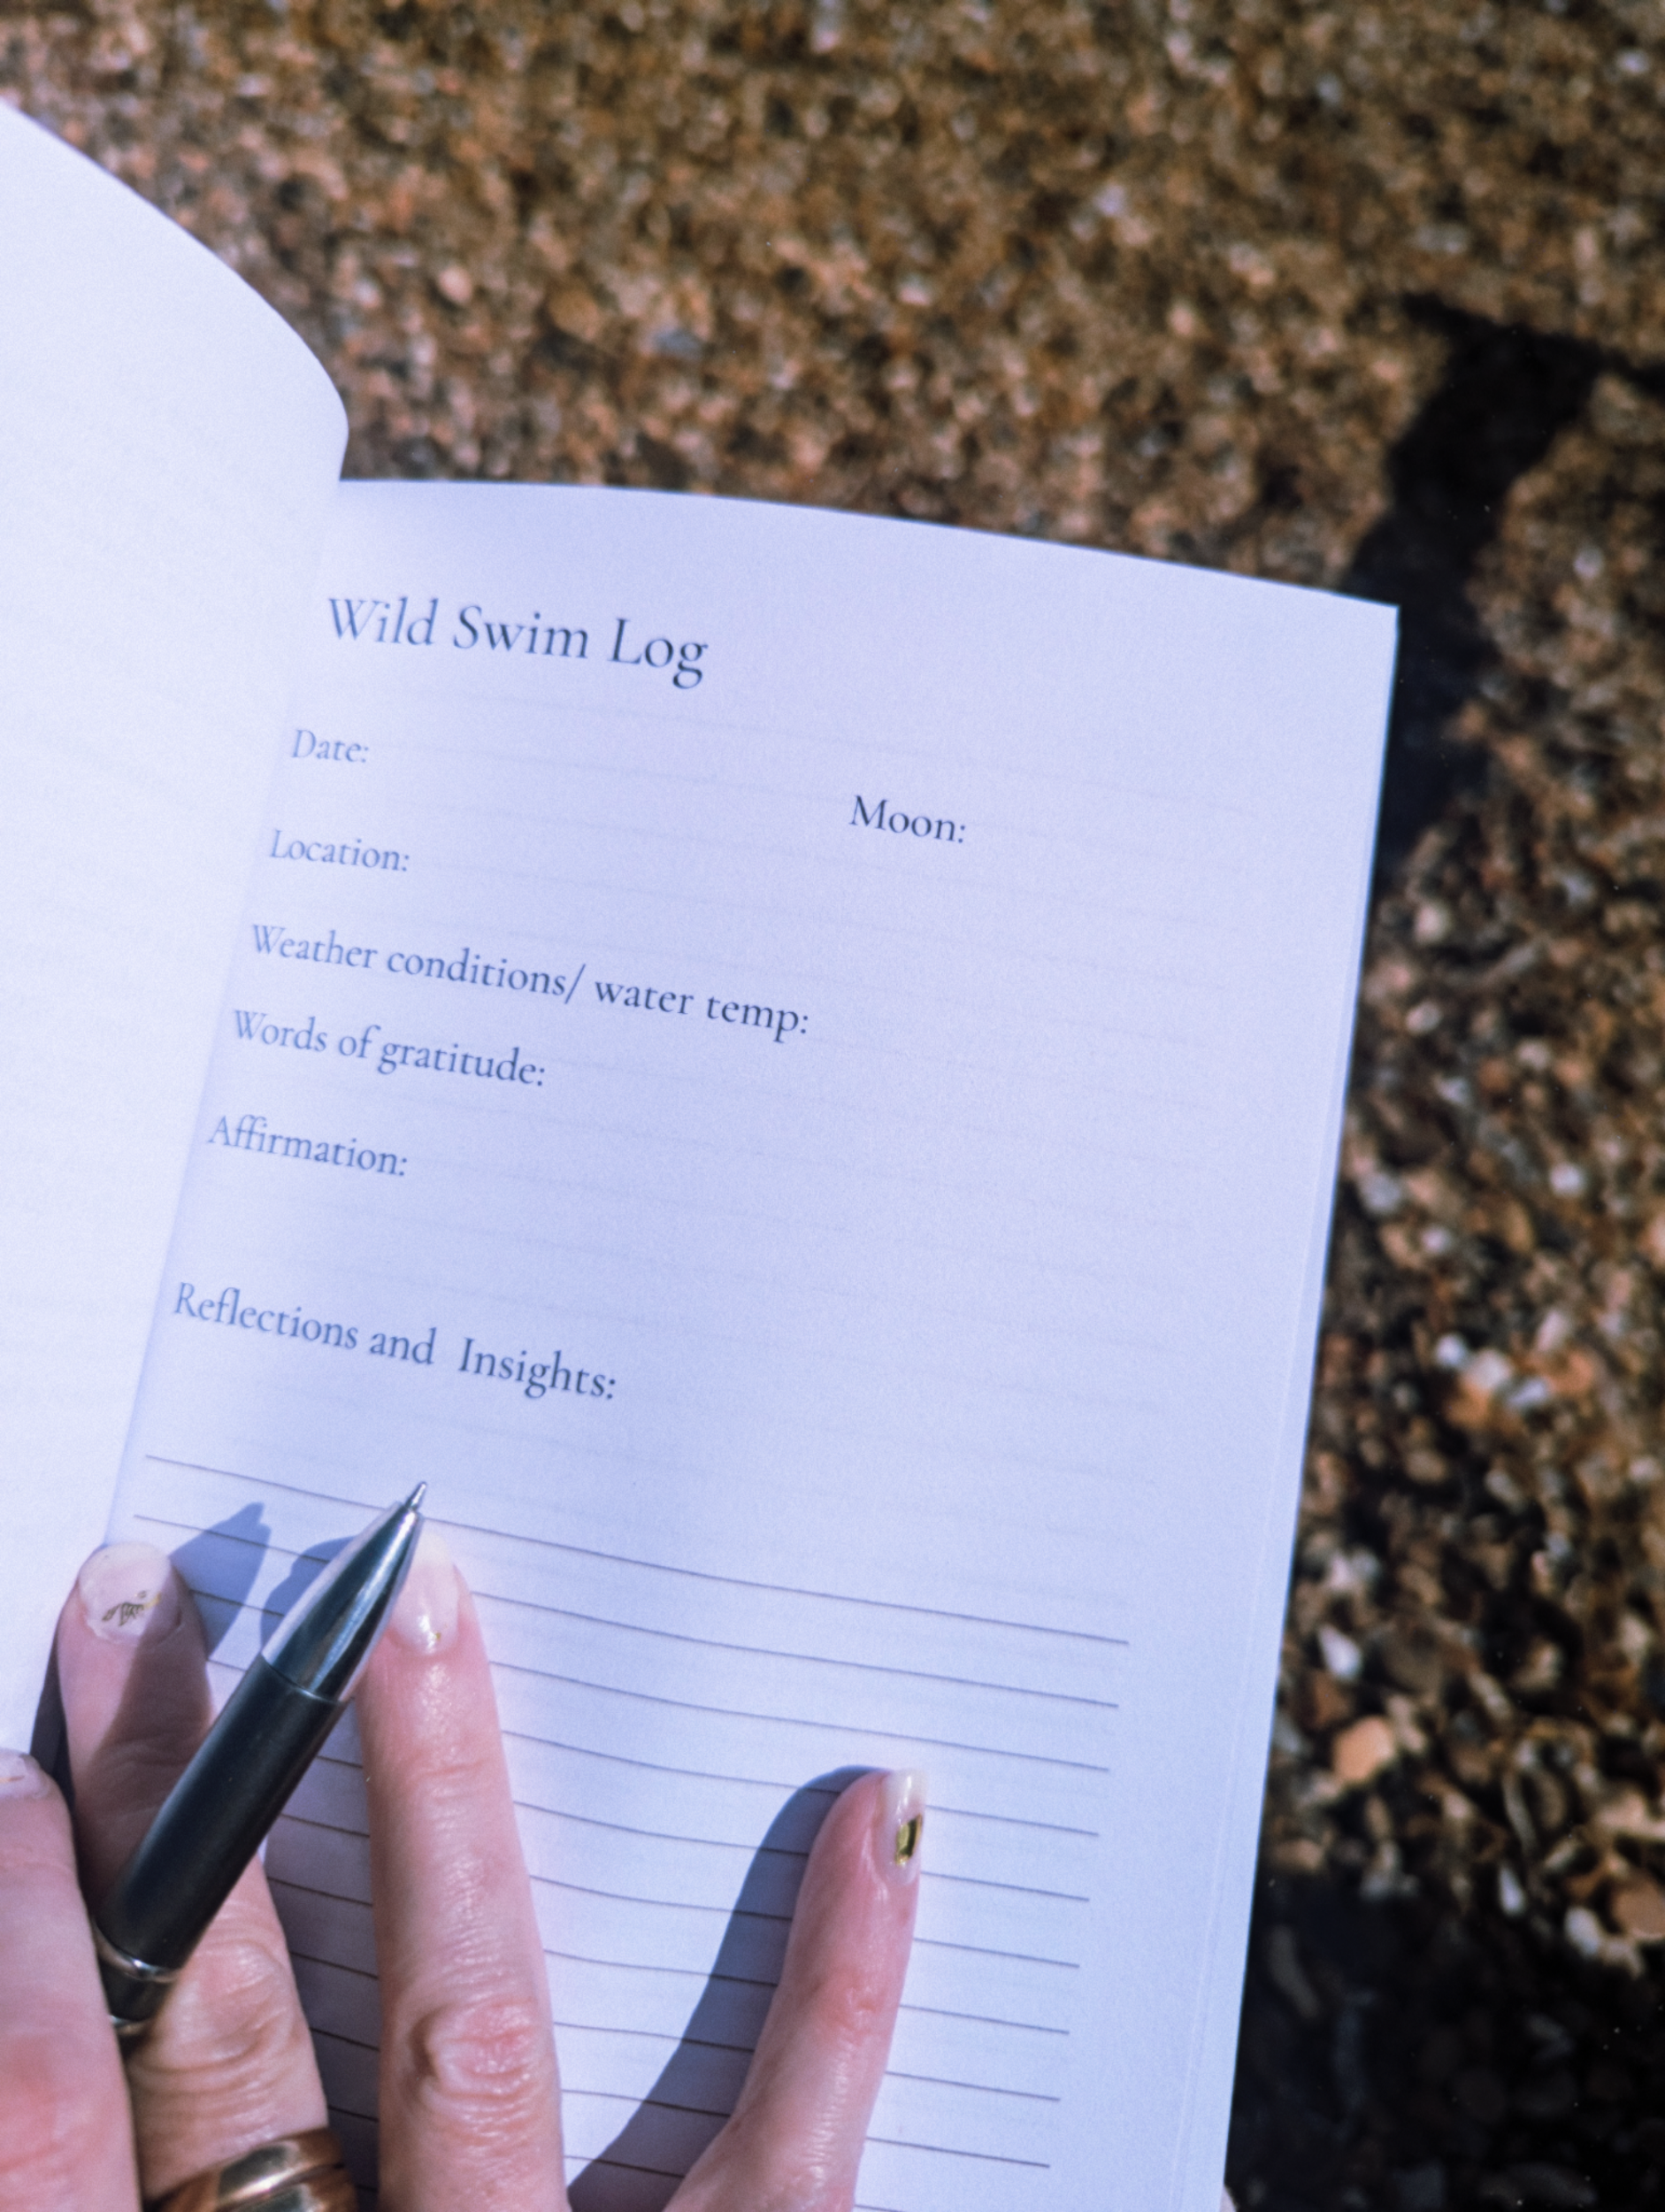 Wild Swim Log
Date:
Moon:
Location:
Weather conditions/ water temp:
Words of gratitude:
Affirmation:
Reflections and Insights: